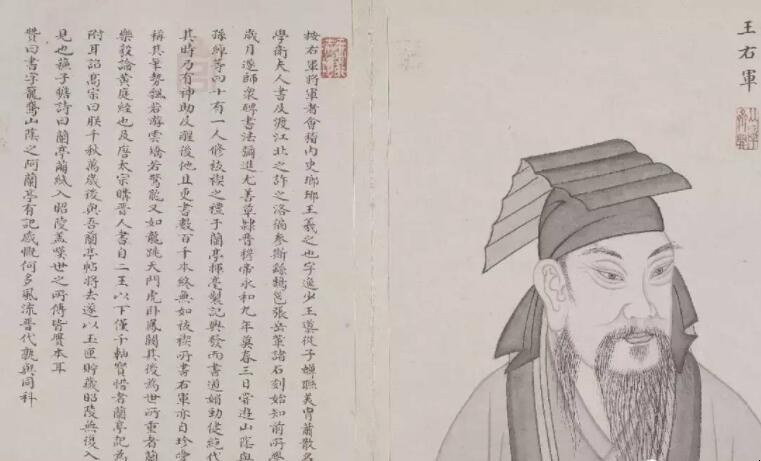 王右軍
按右軍將軍者會稽內史瑯琊王羲之也字逸少王導從子蟬聯美冑蕭散名
學衛夫人書及渡江北之許之洛徧參斯繇鵠邕張岳華諸石刻始知前所學
歲月遂師衆碑書法彌進尤善草隸晉穆帝永和九年莫春三日宦遊山陰與
孫綽等四十有一人修祓禊之禮于蘭亭揮毫製記興發而書遒媚勁健絕代
其時乃有神助及醒後他日更書數百千本終無如祓禊所書右軍亦自珍愛
稱其筆勢飄若游雲矯若驚龍又如龍跳天門虎臥鳳閣其後為世所重者蘭
樂毅論黃庭經也及唐太宗購晉人書自二王以下僅千軸寶惜者蘭亭記為
附耳語高宗曰朕千秋萬歲後與吾蘭亭帖將去遂以玉匣貯藏昭陵無復入
見也蘇子瞻詩曰蘭亭繭紙入昭陵蓋嘆世之所傳皆贗本耳
贊曰書字籠鵞山陰之阿蘭亭有記感慨何多風流晉代孰與同科